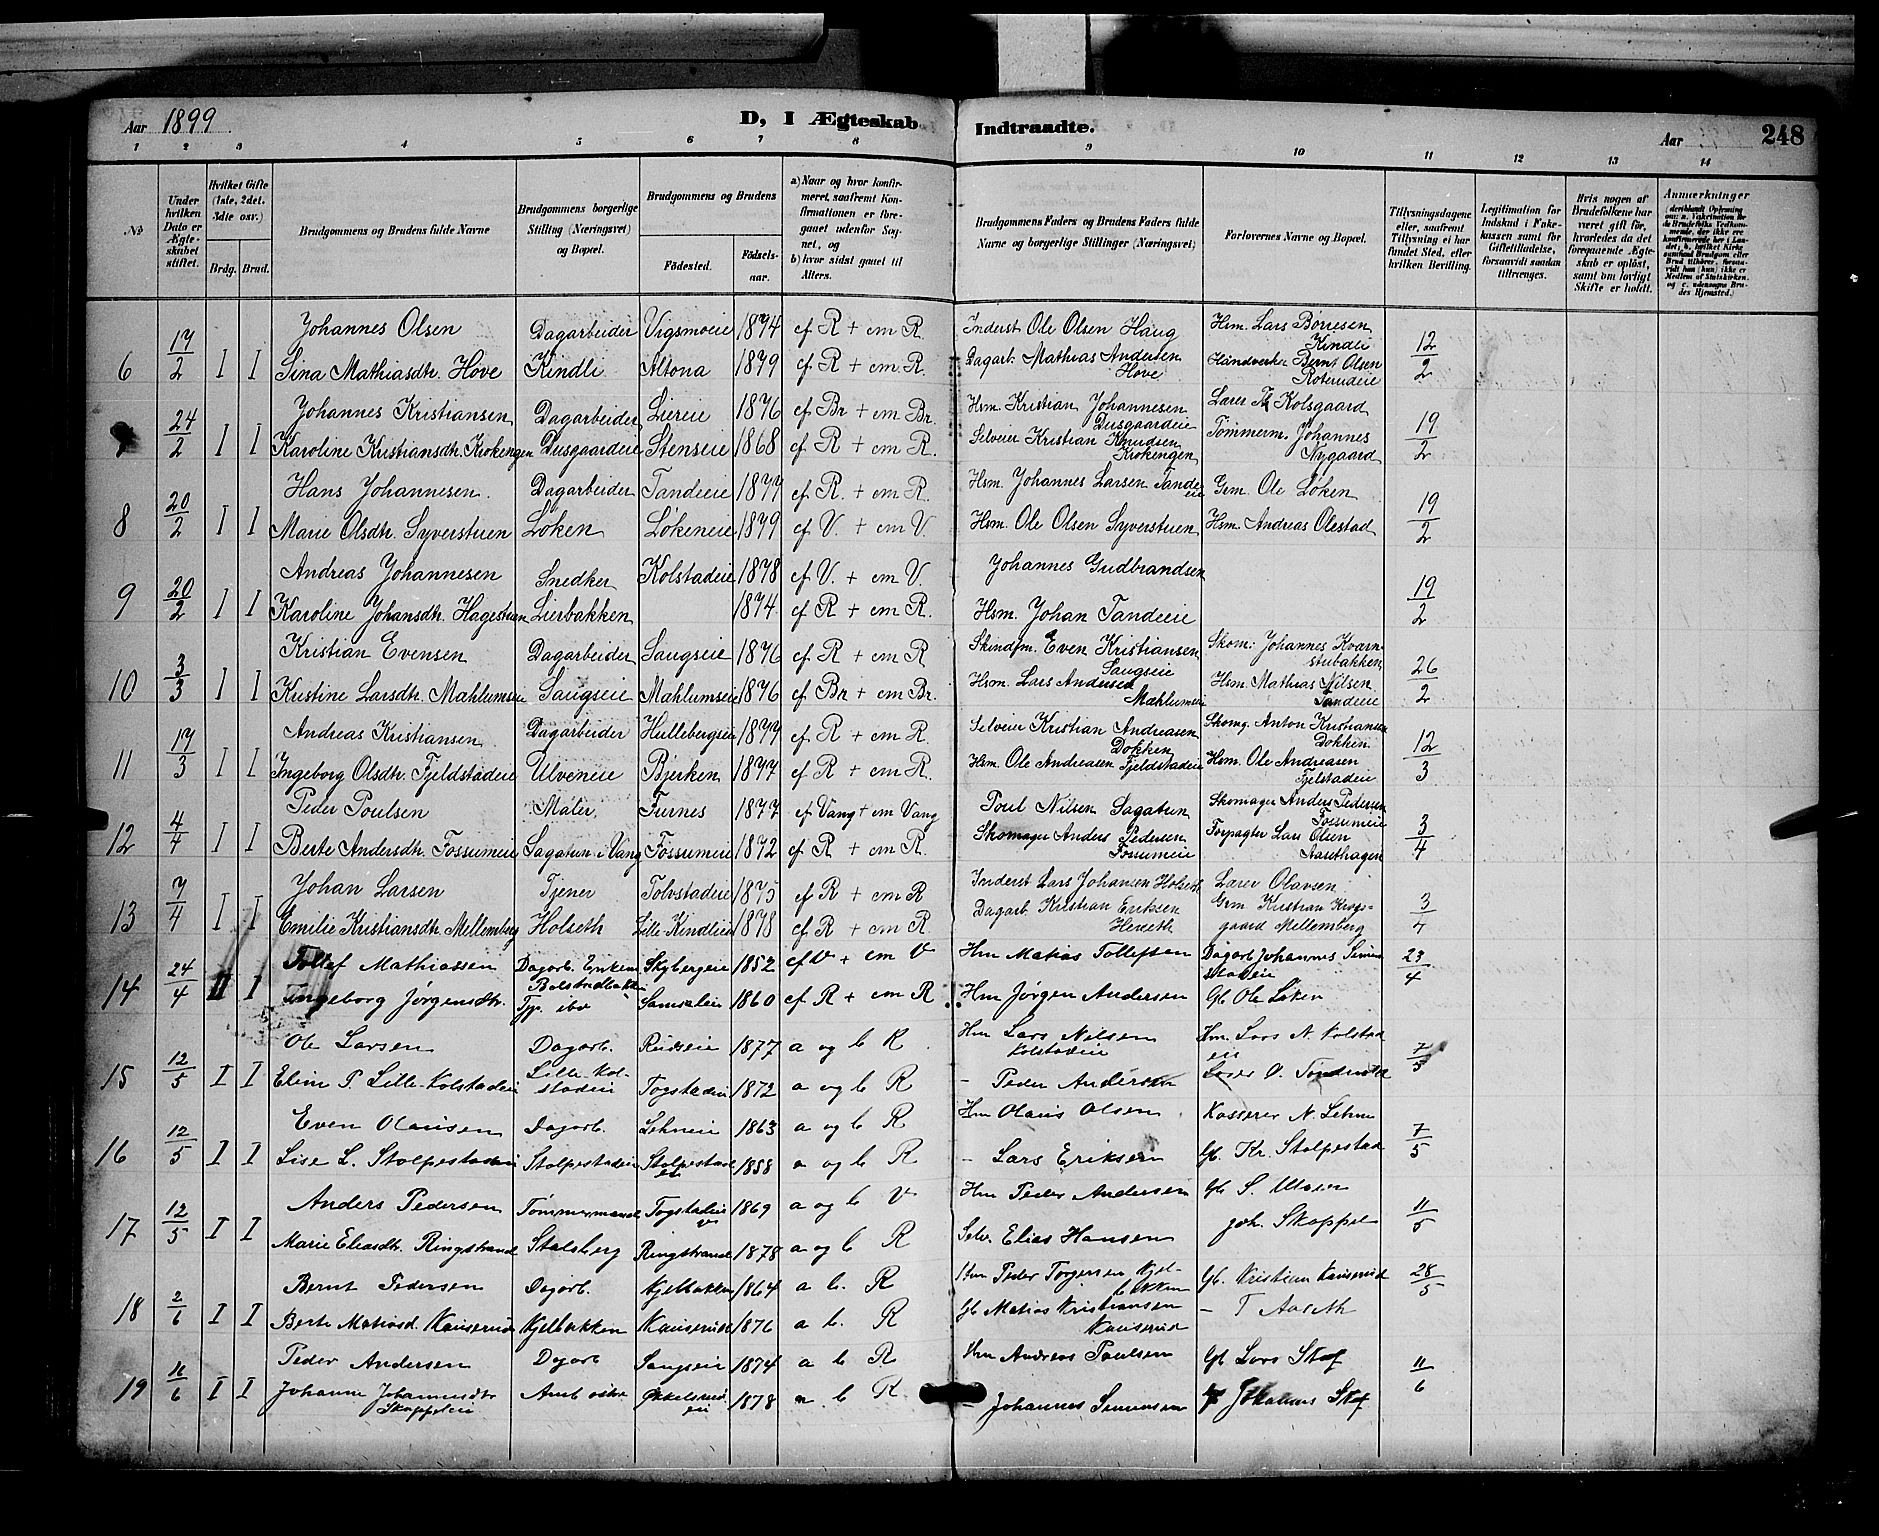 Aar 1899.
D, I Ægteskab
Indtraadte.
Aar
248
1 2 3 4 5 6 7 8 9 10 11 12 13 14
No
Under hvilken Dato er Ægteskabet stiftet.
Hvilket Gifte (1ste, 2det, 3die osv.)
Brdg. Brud.
Brudgommens og Brudens fulde Navne
Brudgommens borgerlige Stilling (Næringsvei) og Bopæl.
Brudgommens og Brudens
Fødested.
Fødselsaar.
a) Naar og hvor konfirmeret, saafremt Konfirmationen er foregaaet udenfor Sognet, og
b) hvor sidst gaaet til Alters.
Brudgommens Faders og Brudens Faders fulde Navne og borgerlige Stillinger (Næringsvei)
Forlovernes Navne og Bopæl.
Tillysningsdagene eller, saafremt Tillysning ei har fundet Sted, efter hvilken Bevilling.
Legitimation for Indskud i Enkekassen samt for Giftetilladelse, forsaavidt saadan tiltrænges.
Hvis nogen af Brudefolkene har været gift før, hvorledes da det foregaaende Ægteskab er opløst, samt om lovligt Skifte er holdt.
Anmerkninger
Johannes Olsen Dagarbeider Vigsmoeie 1874 cf R + cm R. Inderst Ole Olsen Haug Hsm. Lars Børresen Kindli
6 17/2 I I Sina Mathiasdtr. Hove Kindli Altona 1879 cf R + cm R. Dagarb. Mathias Andersen Hove Håndverker Bernt Olsen Roterudeie 12/2
Johannes Kristiansen Dagarbeider Liereie 1876 cf Br + cm Br. Hsm. Kristian Johannesen Dusgaardeie Lærer Kolsgaard
7 24/2 I I Karoline Kristiansdtr. Krokengen Dusgaardeie Stenseie 1868 cf R + cm R. Selveier Kristian Knudsen Krokengen Tømmerm. Johannes Nygaard 19/2
Hans Johannesen. Dagarbeider Tandeeie 1877 cf R. + cm R. Hsm. Johannes Larsen Tandeeie Grm. Ole Løken
8 20/2 I I Marie Olsdtr. Syverstuen Løken Løkeneie 1879 cf V. + cm V. Hsm. Ole Olsen Syverstuen Hsm. Andreas Olestad 19/2
Andreas Johannesen Snedker Kolstadeie 1878 cf V. + cm V. Johannes Gudbrandsen
9 20/2 I I Karoline Johansdtr. Hagestuen Lierbakken 1874 cf R + cm R. Hsm. Johan Tandeeie 19/2
Kristian Evensen Dagarbeider Saugseie 1876 cf R + cm R Skindfm. Even Kristiansen Saugseie Skom: Johannes Kværnstubakken
10 3/3 I I Kristine Larsdtr. Mæhlumseie Saugseie Mæhlumseie 1876 cf Br + cm Br. Hsm. Lars Andersen Mæhlumseie Hsm. Mathias Nilsen Tandeeie 26/2
Andreas Kristiansen Dagarbeider Hullebergseie 1877 cf R + cm R. Selveier Kristian Andreasen Dokken Skomg. Anton Kristiansen Dokken
11 17/3 I I Ingeborg Olsdtr. Fjeldstadeie Ulveneie Bjerken 1877 cf R + cm R. Hsm. Ole Andreasen Fjeldstadeie Hsm. Ole Andreasen Fjelstadeie 12/3
Peder Poulsen Maler, Furnes 1877 cf Vang + cm Vang Poul Nilsen Sagatun Skomager Anders Pedersen Fossumeie
12 4/4 I I Berte Andersdtr. Fossumeie Sagatun i Vang Fossumeie 1872 cf R + cm R. Skomager Anders Pedersen Fossumeie Forpagter Lars Olsen Aasethagen 3/4
Johan Larsen Tjener Tolvstadeie 1875 cf R + cm R Inderst Lars Johansen Holseth Lærer Olavsen
13 7/4 I I Emilie Kristiansdtr. Mellemberg Holseth Lille-Kindlieie 1878 cf R + cm R. Dagarb. Kristian Eriksen Grm Kristian Krogsgaard Mellemberg 3/4
Tollef Mathiassen Dagarb. Enkem. Skybergeie 1852 cf V + cm V Hm Matias Tollefsen Dagarb Johannes
14 24/4 II I Ingeborg Jørgensdtr. Tjp. ibd 1860 cf R + cm R Hm Jørgen Andersen Gb. Ole Løken 23/4
Ole Larsen Dagarb. Rudseie 1877 a og b R Hm Lars Nilsen Kolstadeie Hm. Lars N. Kolstadeie
15 12/5 I I Eline P. Lille-Kolstadeie Lille-Kolstadeie Togstadeie 1872 a og b R – Peder Andersen Lærer O. 7/5
Even Olausen Dagarb. Lehneie 1863 a og b R Hm Olaus Olsen Kasserer N. Lehne
16 12/5 I I Lise L. Stolpestadeie Stolpestadeie Stolpestadeie 1858 a og b R – Lars Eriksen Gb. Kr. Stolpestad 7/5
Anders Pedersen Tømmermand Togstadeie 1869 a og b V Hm Peder Andersen Gb S.
17 12/5 I I Marie Eliasdtr. Ringstrand Stalsberg Ringstrand 1878 a og b R Selv. Elias Hansen Joh. Skappel 11/5
Bernt Pedersen Dagarb. Kjelbakken 1864 a b. R Hm Peder Torgersen Kjelbakken Gb. Kristian Kauserud
18 2/6 I I Berte Matiasd. Kauserud Kjelbakken Kauserud 1876 a b. R Gb Matias Kristiansen Kauserud – T Aaseth 28/5
Peder Andersen Dagarb Saugseie 1874 a b R Hm Andreas Paulsen Gb Lars Skof
19 11/6 I I Johanne Johannesdtr Skappeleie 1878 a b R Johannes Simensen Johannes Skof 11/6